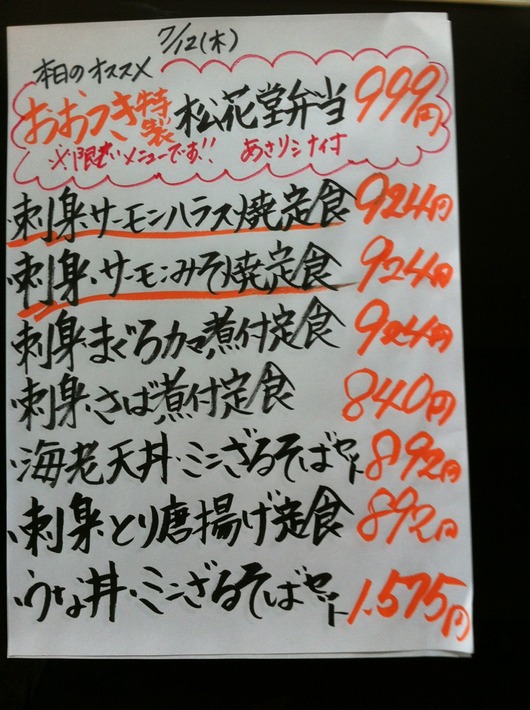 7/12(木)
本日のオススメ
おおつき特製 松花堂弁当 999円
※限定メニューです!! あさりシナイ付
・刺身サーモンハラス焼定食 924円
・刺身・サーモンみそ焼定食 924円
・刺身まぐろカマ煮付定食 924円
・刺身・さば煮付定食 840円
・海老天丼・ミニざるそばセット 892円
・刺身とり唐揚げ定食 892円
・うな丼・ミニざるそばセット 1.575円